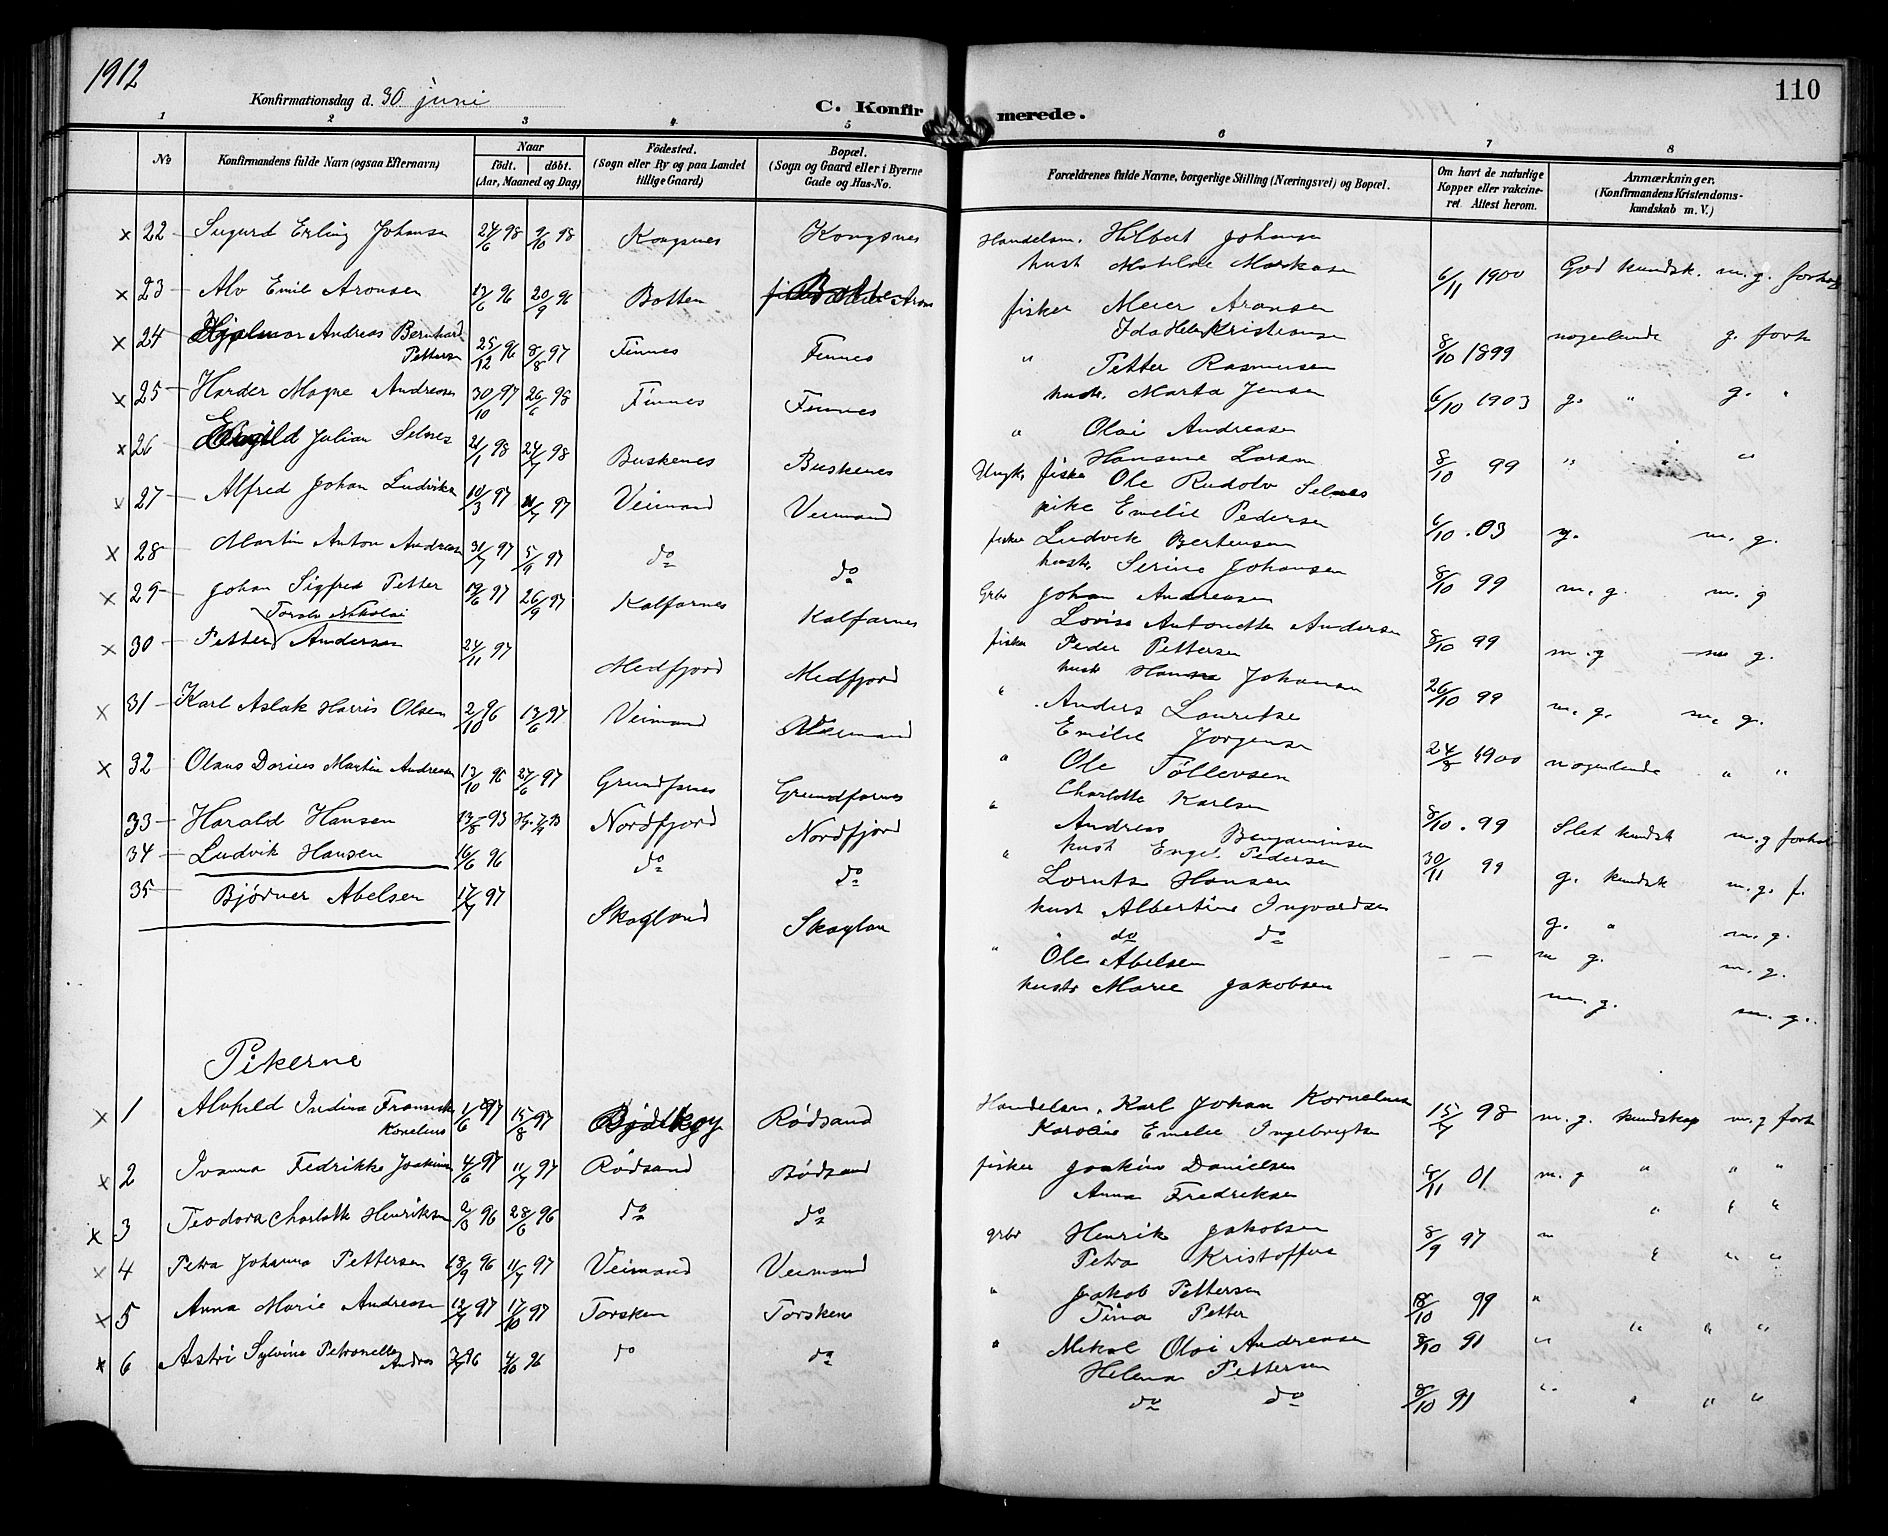 1912
Konfirmationsdag d. 30 juni
C. Konfirmerede.
110
1 2 3 4 5 6 7 8
No
Konfirmandens fulde Navn (ogsaa Efternavn)
Naar
födt. döbt.
(Aar, Maaned og Dag)
Födested.
(Sogn eller By og paa Landet
tillige Gaard)
Bopæl.
(Sogn og Gaard eller i Byerne
Gade og Hus-No.
Forældrenes fulde Navne, borgerlige Stilling (Næringsvei) og Bopæl.
Om havt de naturlige
Kopper eller vakcine-
ret Attest herom.
Anmærkninger.
(Konfirmandens Kristendoms-
kundskab m. V.)
x 22 Sigurd Erling Johansen 24/6 98 9/10 98 Kongsnes Kongsnes
Handelsm. Hilbert Johansen
hust Matilde Markusen 6/11 1900 God kundsk. m. g. forhold
x 23 Alv Emil Aronsen 12/6 96 20/9 96 Botten
fisker Meier Aronsen
Kristiansen 8/10 1899 nogenlunde g. forh
x 24 Hjalmar Andreas Bernhard
Pettersen 25/12 96 8/8 97 Finnes Finnes
" Petter Rasmussen
hustr. Marta Jensen 6/10 1903 g. " g. "
x 25 Harder Magne Andreasen 30/10 97 26/6 98 Finnes Finnes
" Olai Andreasen
Hansine Larsen 8/10 99 " "
x 26 Julian Selnes 21/1 98 24/7 98 Buskenes Buskenes
Ungk. fisker Ole Rudolv Selnes
pike Emelie Pedersen 6/10 . 03 g. m. g.
27 Alfred Johan Ludviksen 10/3 97 11/7 97 Veimand Veimand
fisker Ludvik Bertensen
hustr. Serine Johansen 8/10 99 m. g. m. g
x 28 Martin Anton Andreasen 31/7 97 5/9 97 do do
Grbr Johan Andreasen
Lovise Antonette Andersen 8/10 99 m. g m g.
x 29 Johan Sigfred Petter 19/6 97 26/9 97 Kalfarnes Kalfarnes
fisker Peder Pettersen
hust Hanna Johansen 26/10 99 m. g. m. g.
Torolv Nikolai
x 30 Petter Andersen 24/11 97 Medfjord Medfjord
" Anders Lauritsen
Emilie Jørgensen 24/8 1900 nogenlunde " "
x 31 Karl Aslak Harris Olsen 2/10 96 13/6 97 Veimand Veimand
" Ole Tøllevsen
Charlotte Karlsen 8/10 . 99 Slet kundsk m. g forhold
x 32 Olaus Dorius Martin Andreasen 12/10 96 27/6 97 Grundfarnes Grundfarnes
" Andreas Benjaminsen
hust Engel Pedersen 30/11 99 g. kundsk m. g. f.
33 Harald Hansen 13/8 93 Nordfjord Nordfjord
" Lornts Hansen
hust Albertine Ingvardsen g. " m. g.
34 Ludvik Hansen 16/6 96 do do
do do m g. m. g.
35 Bjørner Abelsen 17/7 97 Skogland Skoglan
" Ole Abelsen — —
hustr Marie Jakobsen m. g. m. g.
Pikerne
x 1 Alvhild Indina Fransiska
Kornelius 1/6 97 15/8 97 Rødsand
Handelsm. Karl Johan Kornelius
Karoline Emelie Ingebrigtsen 15/7 98 m. g. kundskap m. g forh
x 2 Ivanna Fedrikke Joakimsen 4/6 97 11/7 97 Rødsand Rødsand
fisker Joakim Danielsen
Anna Fredriksen 8/11 01 m. g " " "
x 3 Teodora Charlotte Henriksen 2/3 96 28/6 96 do do
grbr Henrik Jakobsen
Petra Kristoffersen 8/9 97 "
x 4 Petra Johanna Pettersen 13/9 96 11/7 97 Veimand Veimand
" Jakob Pettersen
Tina Petter 8/10 99 "
x 5 Anna Marie Andreasen 12/7 97 17/10 97 Torsken Torsken
" Mikal Olai Andreasen
Helena Pettersen 8/10 91 "
x 6 Astri Sylvine Petronelle
Andreas 4/10 96 do do
do do 8/10 91 " " " "